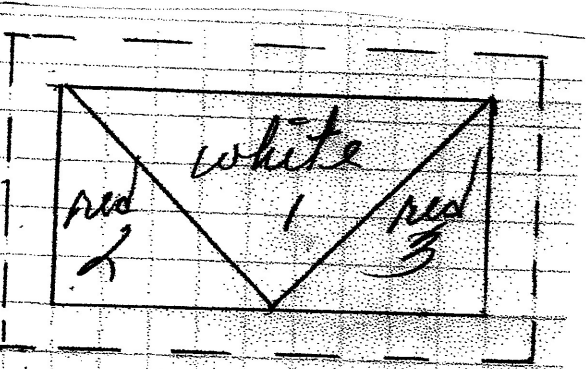 white
1
red
2
red
3